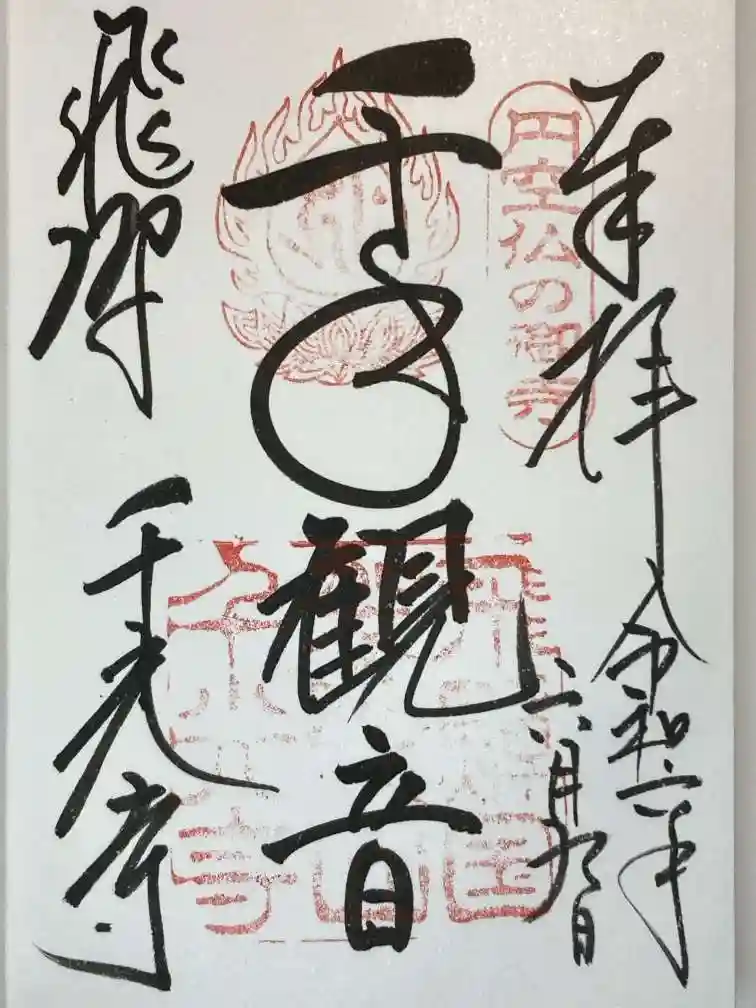 奉拝
令和六年
六月九日
円空仏の御寺
千手観音
飛騨
千光寺